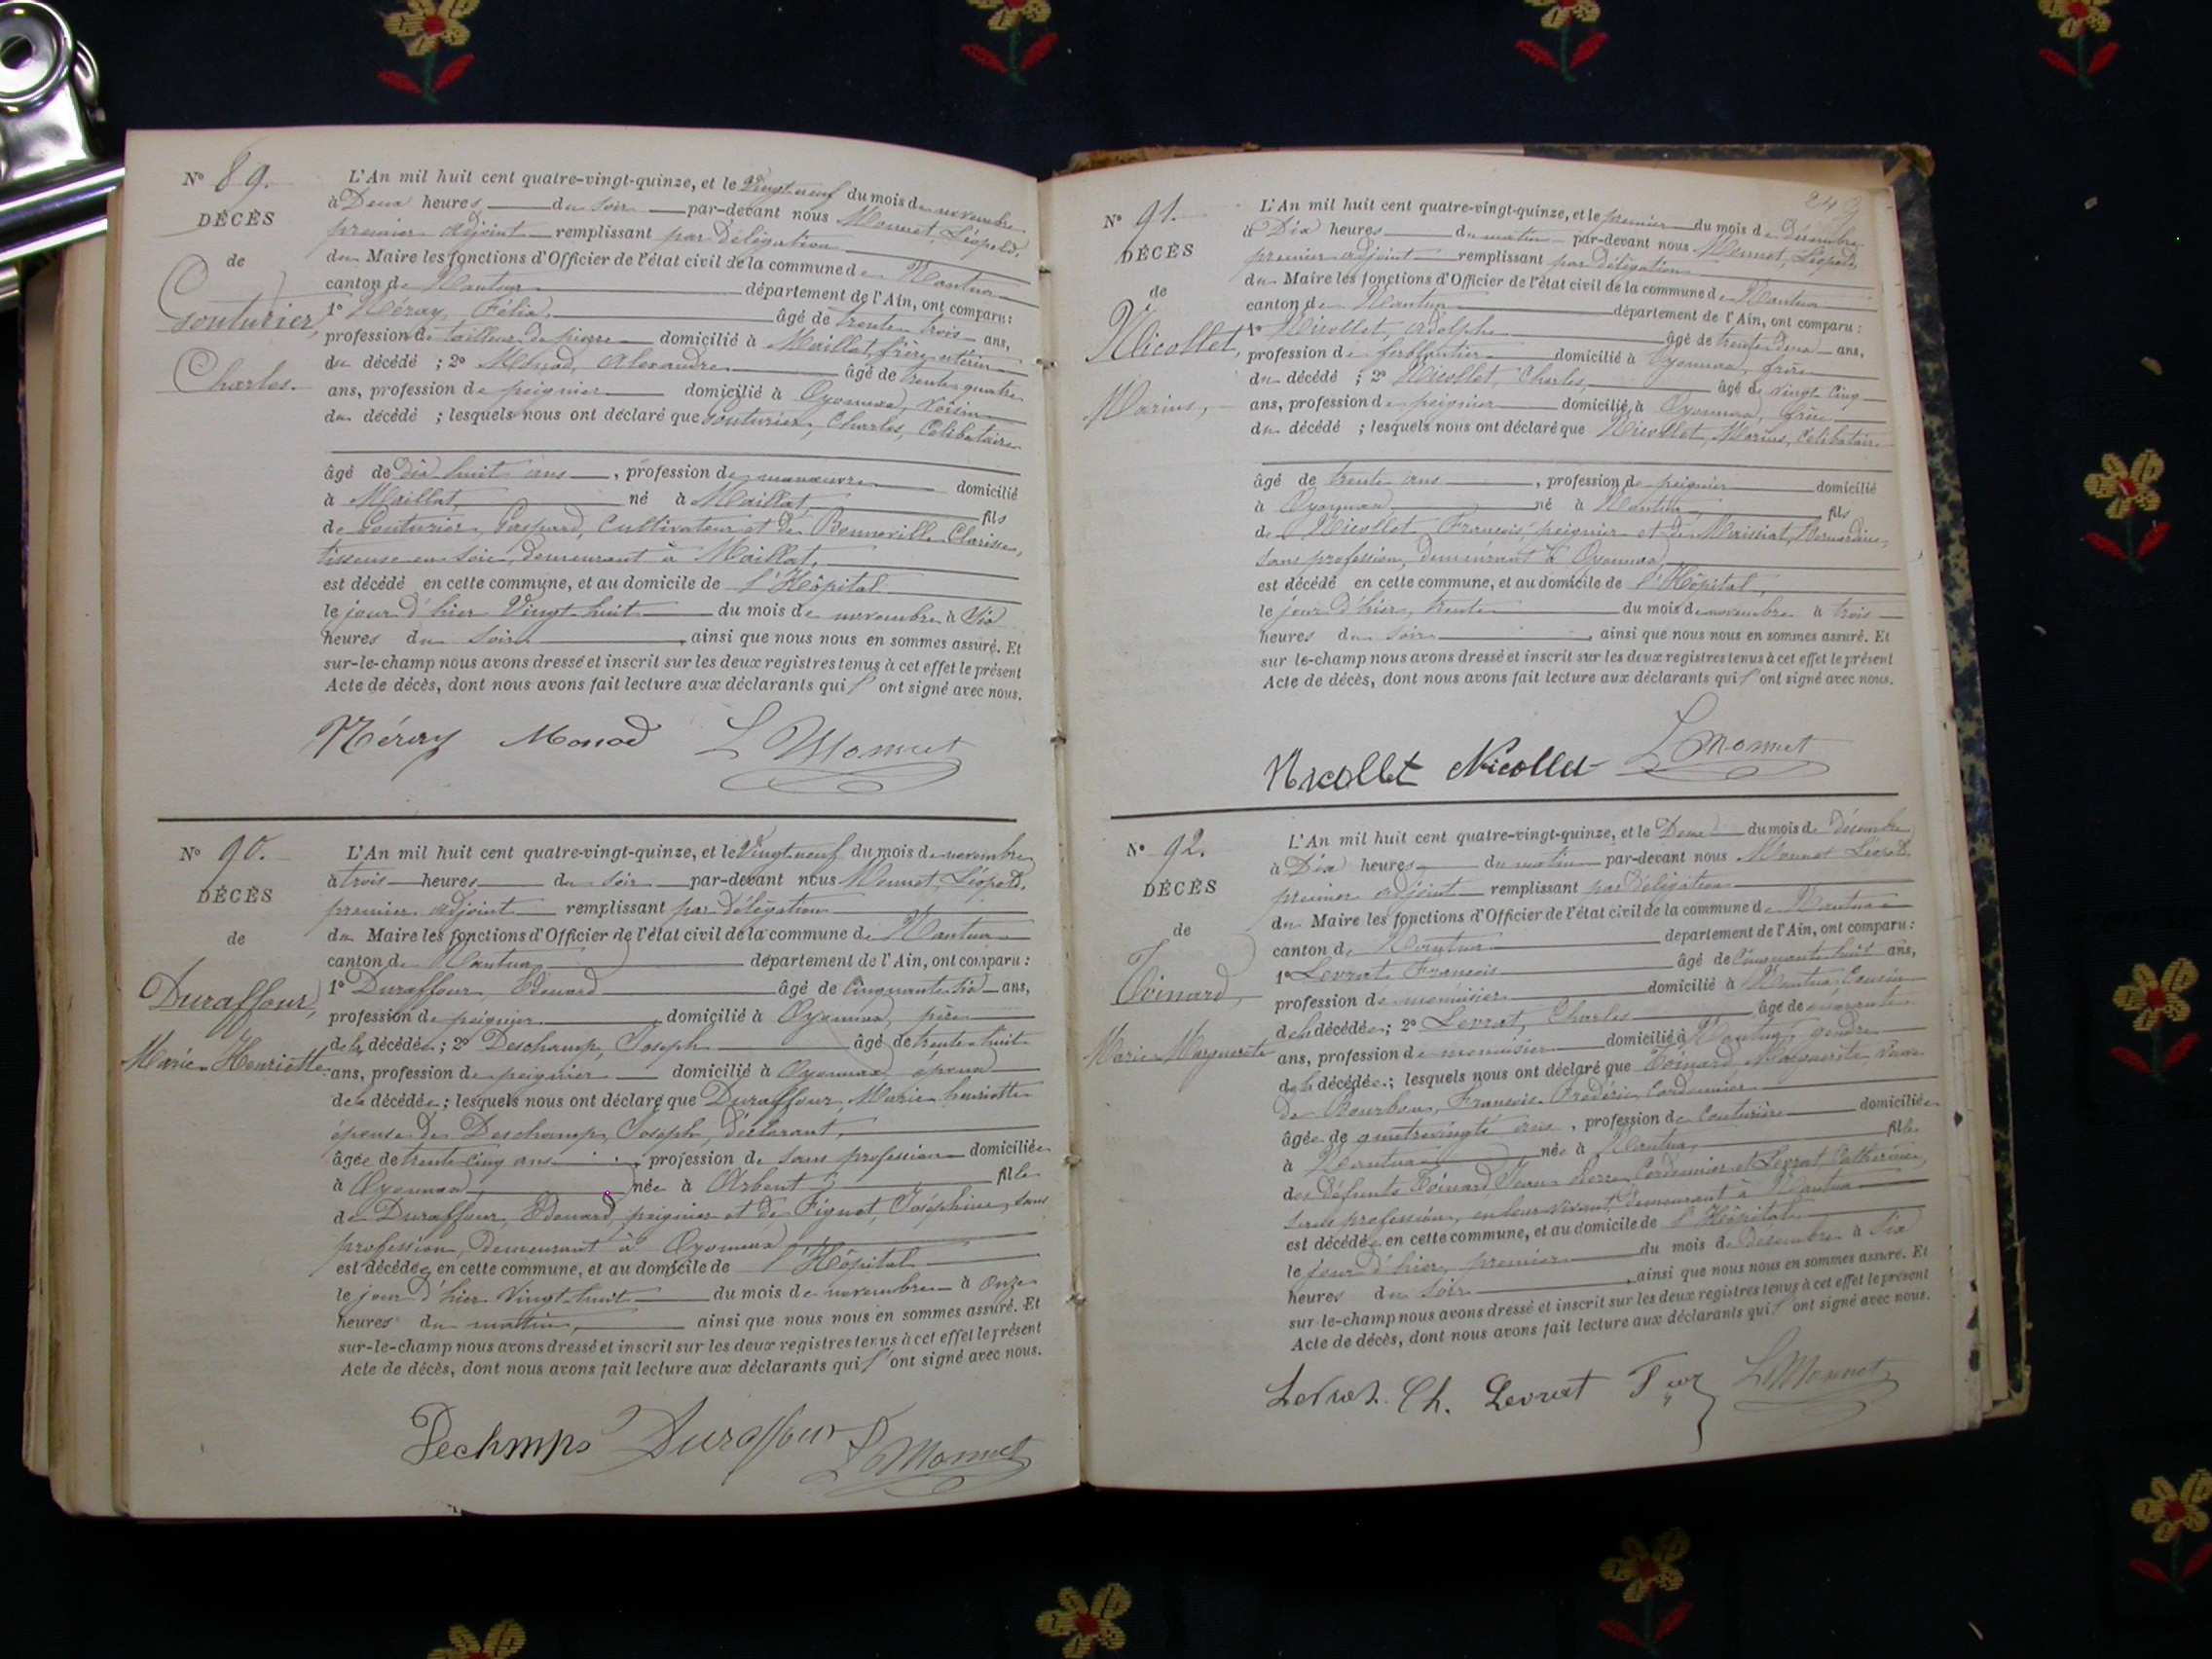 N° 89.
DÉCÈS
de
Couturier,
Charles.
L'An mil huit cent quatre-vingt-quinze, et le Vingt neuf du mois de novembre
à Deux heures du soir par-devant nous Monnet, Léopold,
premier adjoint remplissant par délégation
du Maire les fonctions d'Officier de l'état civil de la commune de Nantua
canton de Nantua département de l'Ain, ont comparu:
1° Néray, Félix, âgé de trente trois ans,
profession de tailleur de pierre domicilié à Maillat, frère utérin
du décédé ; 2° Monod, Alexandre âgé de trente quatre
ans, profession de peignier domicilié à Oyonnax, voisin
du décédé ; lesquels nous ont déclaré que Couturier, Charles, Célibataire
âgé de dix huit ans, profession de manœuvre domicilié
à Maillat, né à Maillat, fils
de Couturier, Gaspard, Cultivateur et de Bonneville Clarisse,
tisseuse en soie, demeurant à Maillat,
est décédé en cette commune, et au domicile de l'Hôpital
le jour d'hier Vingt huit du mois de novembre à Six
heures du soir, ainsi que nous nous en sommes assuré. Et
sur-le-champ nous avons dressé et inscrit sur les deux registres tenus à cet effet le présent
Acte de décès, dont nous avons fait lecture aux déclarants qui l'ont signé avec nous.
Néray Monod L Monnet
N° 90.
DÉCÈS
de
Duraffour,
Marie Henriette
L'An mil huit cent quatre-vingt-quinze, et le Vingt neuf du mois de novembre
à trois heures du soir par-devant nous Monnet, Léopold,
premier adjoint remplissant par délégation
du Maire les fonctions d'Officier de l'état civil de la commune de Nantua
canton de Nantua département de l'Ain, ont comparu :
1° Duraffour, Edouard âgé de Cinquante six ans,
profession de peignier domicilié à Oyonnax, père
de la décédée ; 2° Deschamp, Joseph âgé de trente huit
ans, profession de peignier domicilié à Oyonnax époux
de la décédée ; lesquels nous ont déclaré que Duraffour, Marie henriette
épouse de Deschamp, Joseph, déclarant,
âgée de trente cinq ans, profession de sans profession domiciliée
à Oyonnax née à Arbent fille
de Duraffour, Edouard, peignier et de Pignet, Joséphine, sans
profession, demeurant à Oyonnax
est décédée en cette commune, et au domicile de l'Hôpital
le jour d'hier Vingt-huit du mois de novembre à onze
heures du matin, ainsi que nous nous en sommes assuré. Et
sur-le-champ nous avons dressé et inscrit sur les deux registres tenus à cet effet le présent
Acte de décès, dont nous avons fait lecture aux déclarants qui l'ont signé avec nous.
Dechmps Duraffour L Monnet
N° 91.
DÉCÈS
de
Nicollet,
Marius,
L'An mil huit cent quatre-vingt-quinze, et le premier du mois de Décembre
à Dix heures du matin par-devant nous Monnet, Léopold,
premier adjoint remplissant par délégation
du Maire les fonctions d'Officier de l'état civil de la commune de Nantua
canton de Nantua département de l'Ain, ont comparu :
1° Nicollet, Adolphe âgé de trente deux ans,
profession de ferblantier domicilié à Oyonnax, frère
du décédé ; 2° Nicollet, Charles, âgé de vingt cinq
ans, profession de peignier domicilié à Oyonnax, frère
du décédé ; lesquels nous ont déclaré que Nicollet, Marius, Célibataire
âgé de trente ans, profession de peignier domicilié
à Oyonnax, né à Nantua, fils
de Nicollet François peignier et de Maissiat, Bernardine,
sans profession, demeurant à Oyonnax,
est décédé en cette commune, et au domicile de l'Hôpital,
le jour d'hier, trente du mois de novembre à trois
heures du soir, ainsi que nous nous en sommes assuré. Et
sur le-champ nous avons dressé et inscrit sur les deux registres tenus à cet effet le présent
Acte de décès, dont nous avons fait lecture aux déclarants qui l'ont signé avec nous.
Nicollet Nicollet L Monnet
N° 92.
DÉCÈS
de
Toinard,
Marie Marguerite
L'An mil huit cent quatre-vingt-quinze, et le Deux du mois de Décembre
à Dix heures du matin par-devant nous Monnet Léopold,
premier adjoint remplissant par délégation
du Maire les fonctions d'Officier de l'état civil de la commune de Nantua
canton de Nantua département de l'Ain, ont comparu :
1° Levrat, François âgé de Cinquante huit ans,
profession de menuisier domicilié à Nantua Cousin
de la décédée ; 2° Levrat, Charles âgé de quarante
ans, profession de menuisier domicilié à Nantua, gendre
de la décédée ; lesquels nous ont déclaré que Toinard Marguerite, Veuve
de Bourbon, François Frédéric Cordonnier
âgée de quatrevingts ans, profession de Couturière domiciliée
à Nantua née à Nantua, fille
des défunts Toinard, Jean Pierre Cordonnier et Levrat Catherine,
sans profession, en leur vivant, demeurant à Nantua
est décédée en cette commune, et au domicile de l'Hôpital
le jour d'hier, premier du mois de Décembre à Six
heures du soir, ainsi que nous nous en sommes assuré. Et
sur le-champ nous avons dressé et inscrit sur les deux registres tenus à cet effet le présent
Acte de décès, dont nous avons fait lecture aux déclarants qui l'ont signé avec nous.
Levrat. Ch. Levrat L Monnet